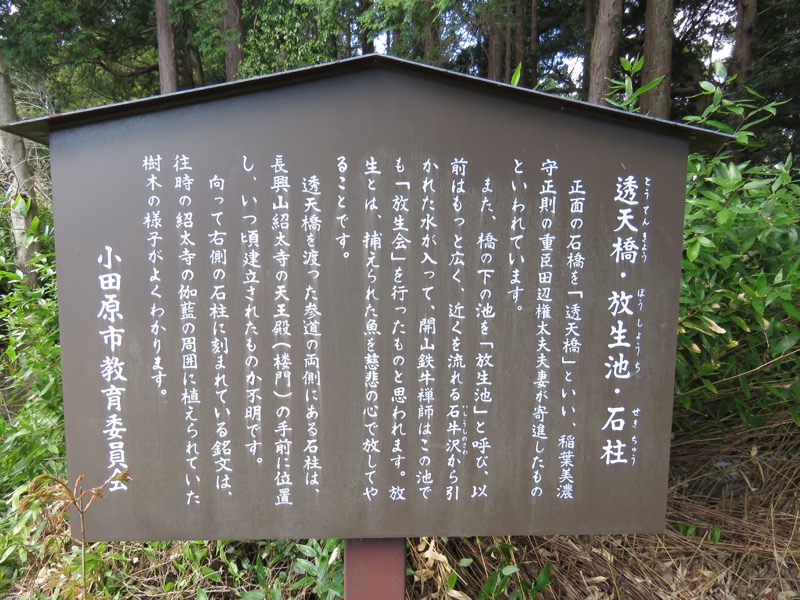 透天橋・放生池・石柱
とうてんきょう ほうしょうち せきちゅう
正面の石橋を「透天橋」といい、稲葉美濃
守正則の重臣田辺権太夫夫妻が寄進したもの
といわれています。
また、橋の下の池を「放生池」と呼び、以
前はもっと広く、近くを流れる石牛沢から引
いしうしのさわ
かれた水が入って、開山鉄牛禅師はこの池で
も「放生会」を行ったものと思われます。放
生とは、捕えられた魚を慈悲の心で放してや
ることです。
透天橋を渡った参道の両側にある石柱は、
長興山紹太寺の天王殿（楼門）の手前に位置
し、いつ頃建立されたものか不明です。
向って右側の石柱に刻まれている銘文は、
往時の紹太寺の伽藍の周囲に植えられていた
樹木の様子がよくわかります。
小田原市教育委員会